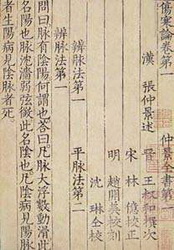 傷寒論卷第一 仲景全書第
漢 張仲景述 晉 王叔和撰次
宋 林億校正
明 趙開美校刻
沈琳仝校
辨脉法第一 平脉法第二
辨脉法第一
問曰脉有陰陽何謂也荅曰凡脉大浮數動滑此
名陽也脉沈濇弱弦微此名陰也凡陰病見陽脉
者生陽病見陰脉者死